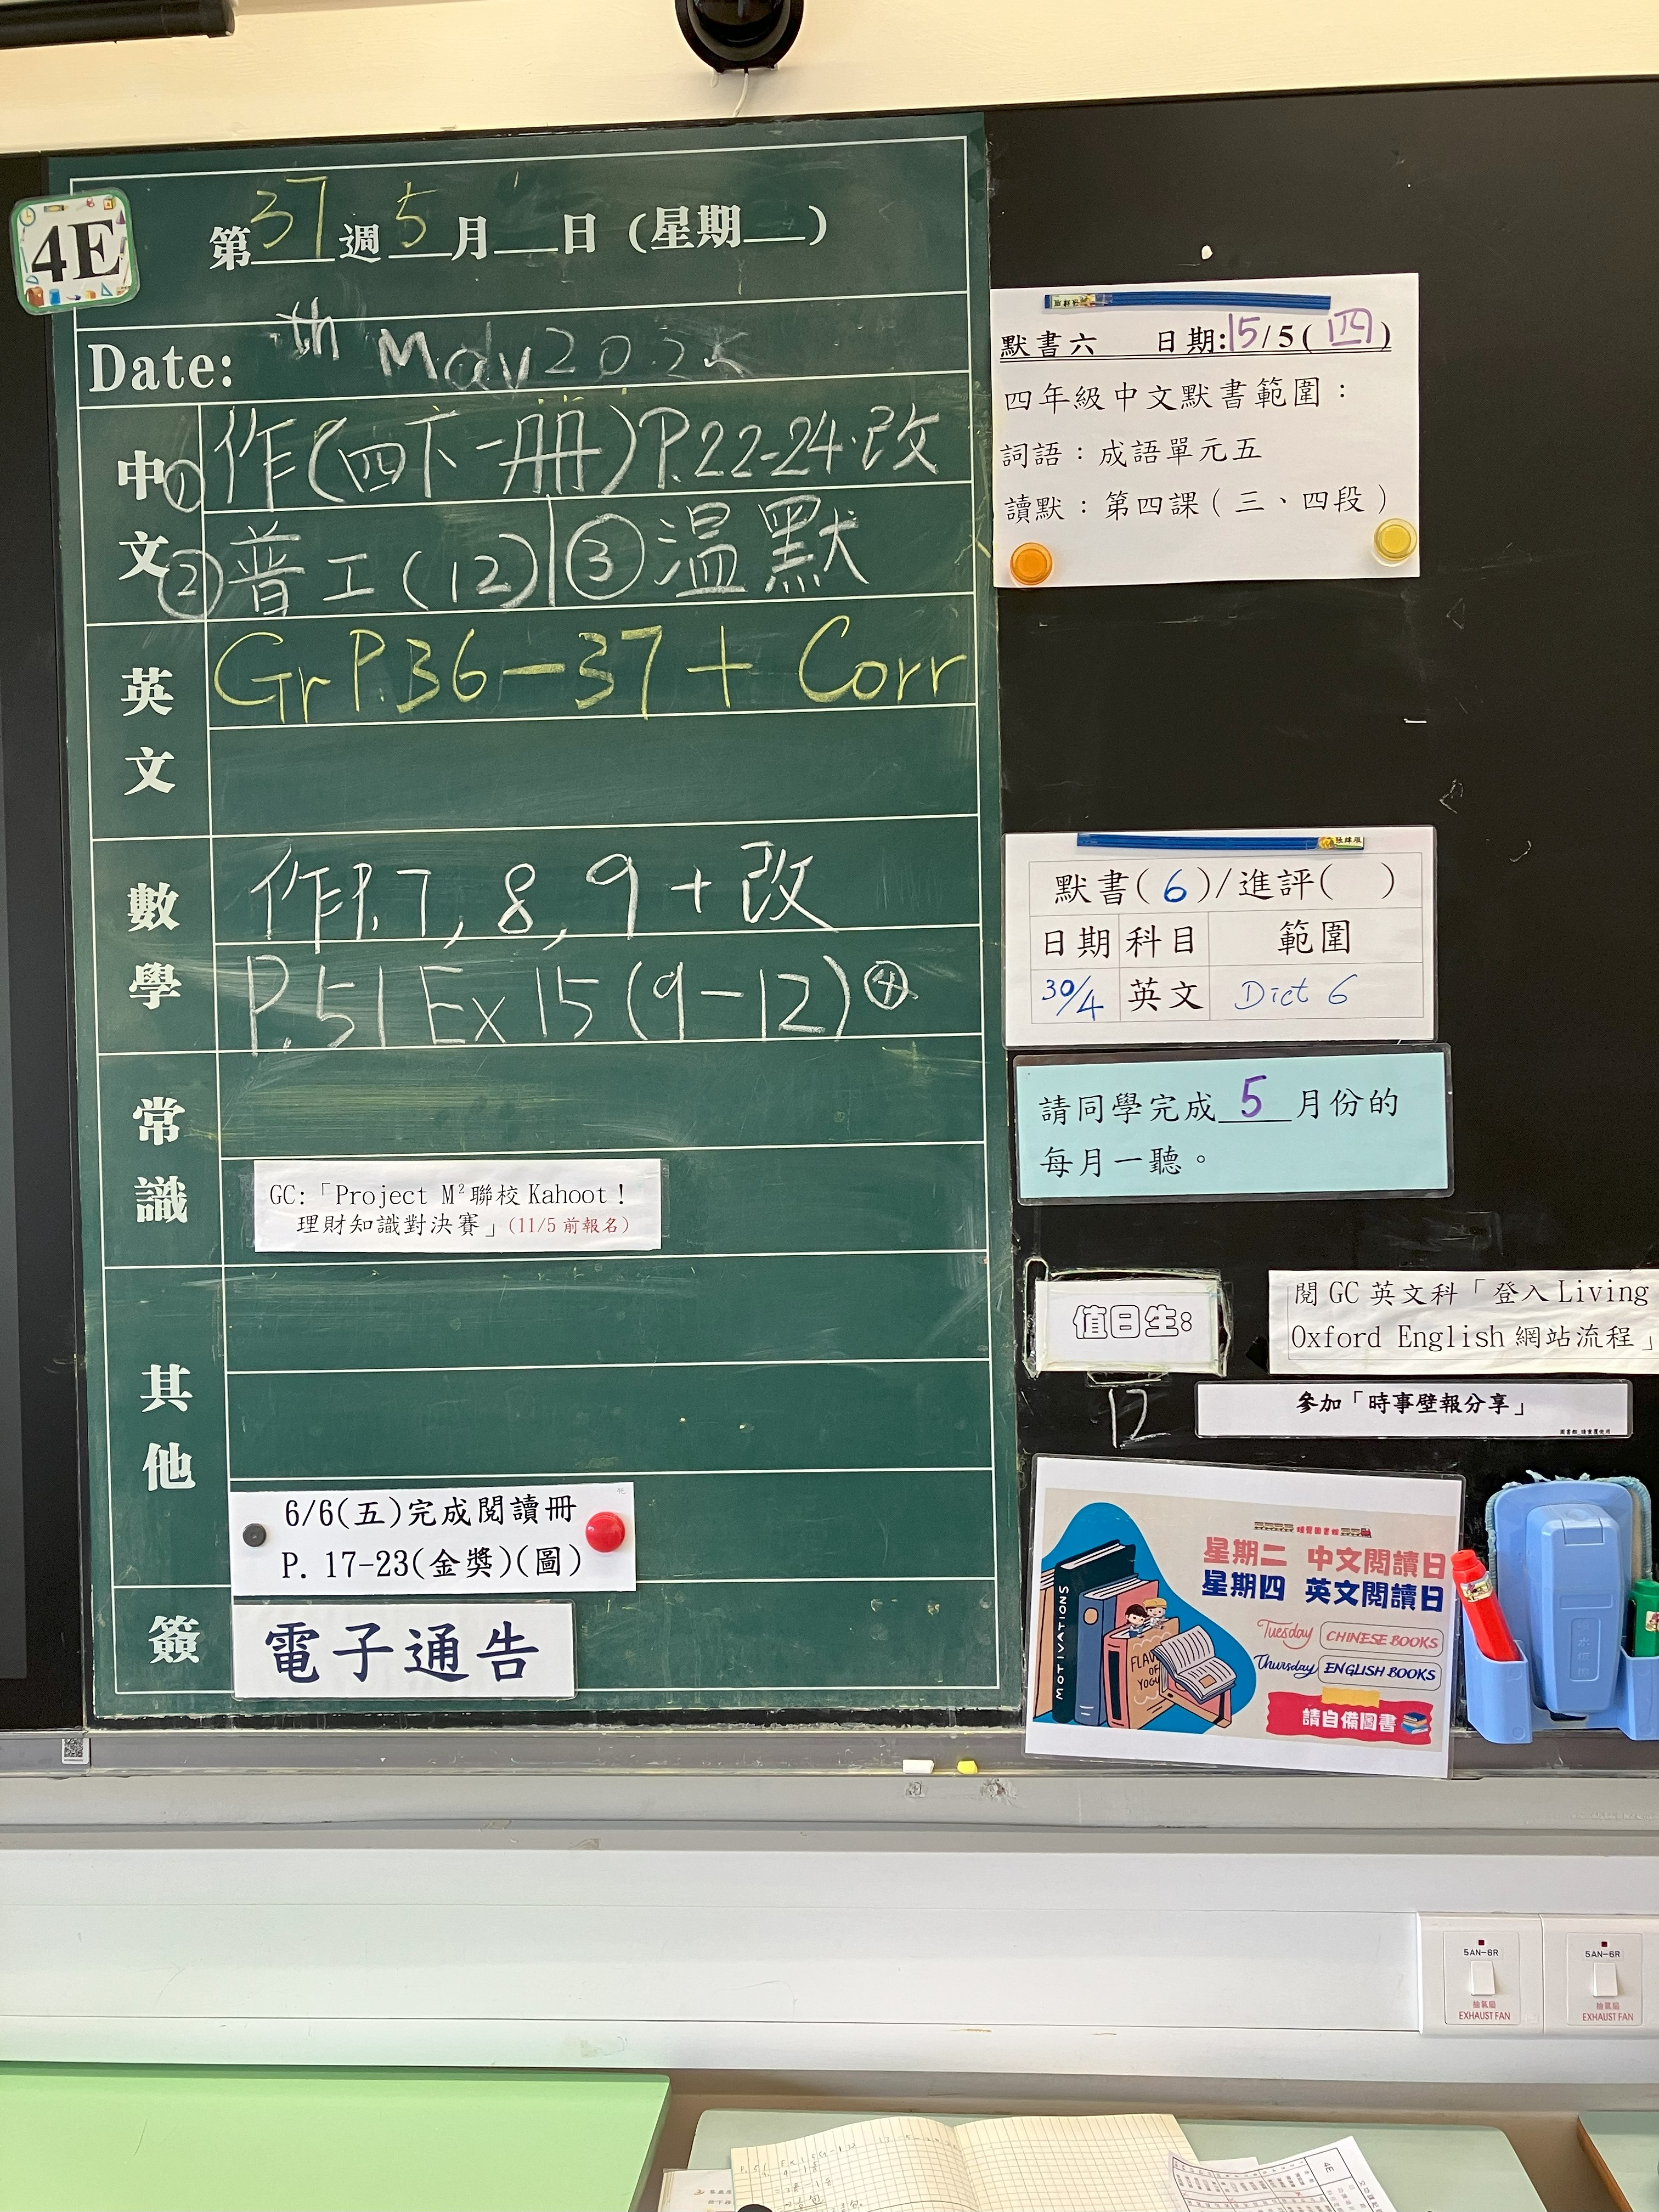 4E
第37週5月__日(星期__)
Date: th May 2025
中文
①作(四下一册)P.22-24.改
②普工(12)|③温默
英文
Gr P.36-37 + Corr
數學
作P.7, 8, 9 + 改
P.51 Ex 15 (9-12) ④
常識
GC:「Project M²聯校 Kahoot!
理財知識對決賽」(11/5 前報名)
其他
6/6(五)完成閱讀冊
P. 17-23(金獎)(圖)
簽
電子通告
默書六 日期:15/5(四)
四年級中文默書範圍:
詞語:成語單元五
讀默:第四課(三、四段)
默書(6)/進評( )
日期 科目 範圍
30/4 英文 Dict 6
請同學完成5月份的
每月一聽。
值日生:
12
閱 GC 英文科「登入 Living
Oxford English 網站流程」
參加「時事壁報分享」
星期二 中文閱讀日
星期四 英文閱讀日
Tuesday CHINESE BOOKS
Thursday ENGLISH BOOKS
請自備圖書
MOTIVATIONS
5AN-6R
抽氣扇
EXHAUST FAN
5AN-6R
抽氣扇
EXHAUST FAN
4E